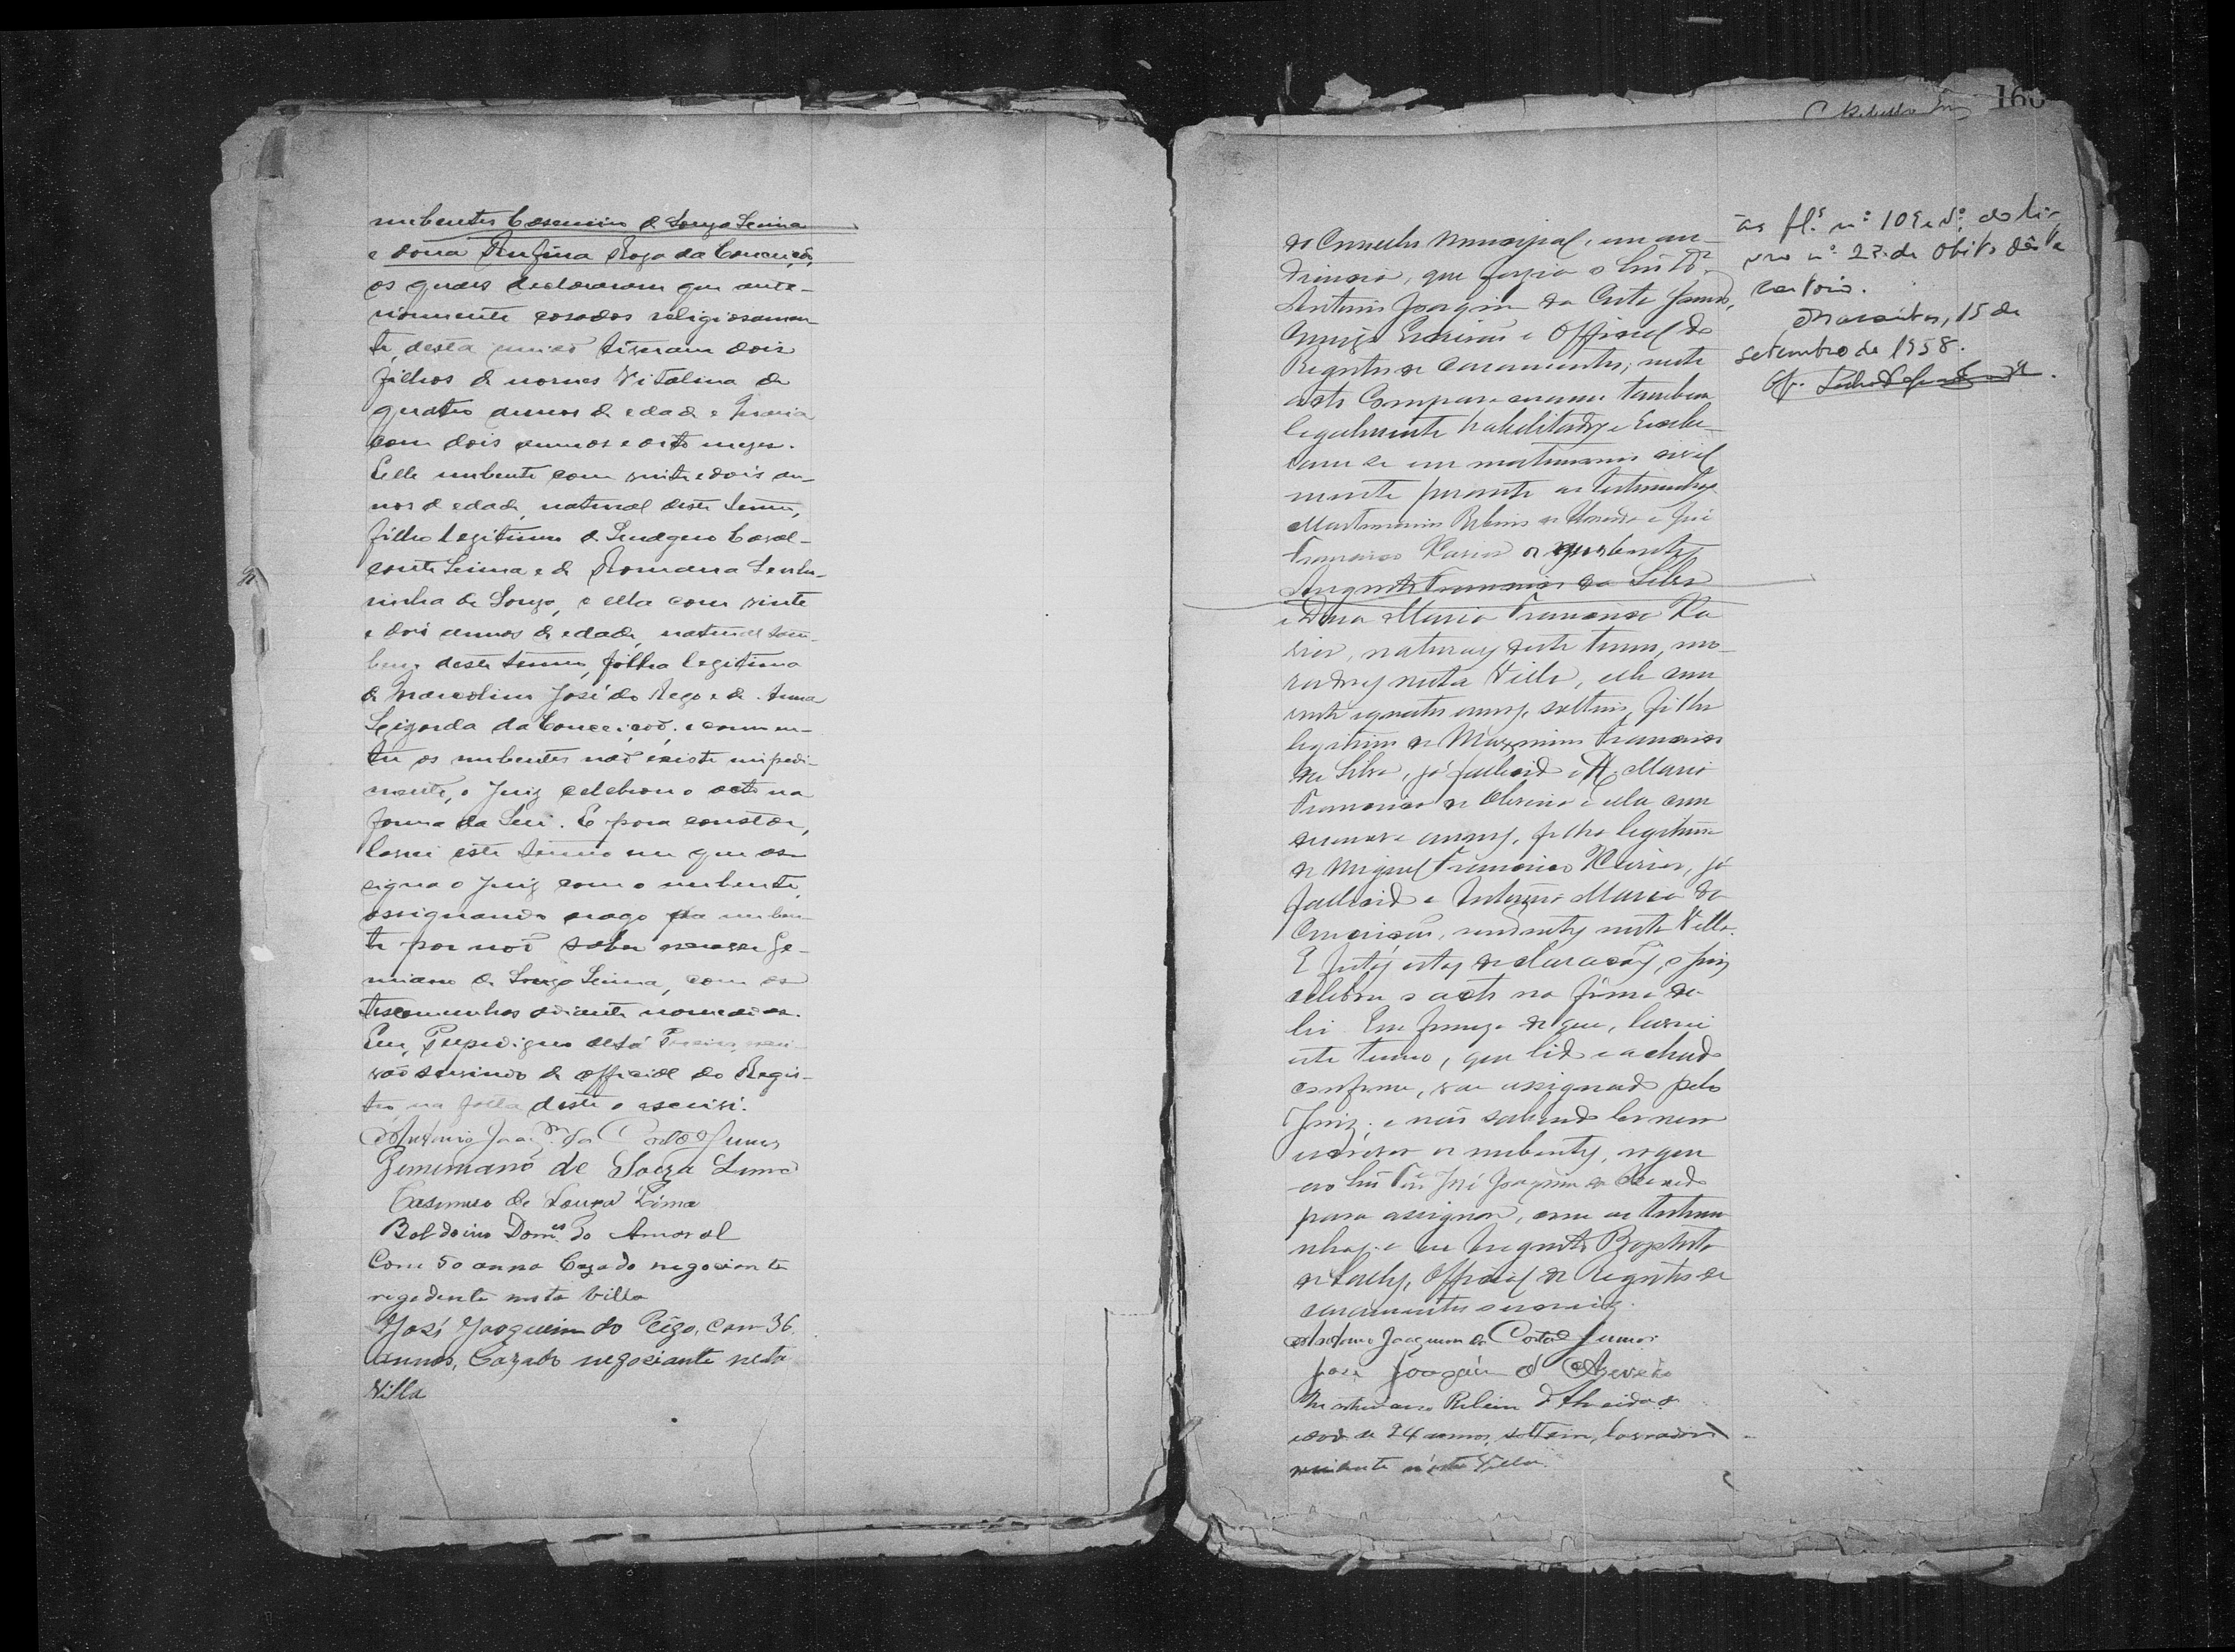 nubentes Casemiro de Souza Lima
e dona Rufina Roza da Conceição,
os quaes declararam que ante-
riormente casados religiosamen-
te, desta união tiveram dois
filhos de nomes Vitalina de
quatro annos de edade e Maria
com dois annos e oito mezes.
Elle nubente com vinte e dois an-
nos de edade, natural deste termo,
filho legitimo de Caval-
cante Lima e de Romana
de Souza, e ella com vinte
e dois annos de edade, natural tam-
bem deste termo, filha legitima
de Marcolino José do Rego e de Anna
da Conceição; e como en-
tre os nubentes não existe impedi-
mento, o Juiz celebrou o acto na
forma da Lei. E para constar,
lavrei este termo em que as-
signa o Juiz com o nubente,
assignando a rogo da nuben-
te por não saber escrever Ge-
miniano de Souza Lima, com as
testemunhas adiante nomeadas.
Eu, de Sá escri-
vão servindo de official do Regis-
tro na falta deste o escrevi.
Antonio Joaqm da Costa Junior
Geminiano de Souza Lima
Casimiro de Souza Lima
Baldoino Domes do Amaral
Com 50 anno Cazado negociante
rezedente nesta Villa
José Joaquim do Rêgo, com 36
annos, Cazado negociante nesta
Villa
160
às fls nº 109 e Vº do li-
vro nº 23 de Obitos dêste
cartorio.
15 de
setembro de 1958.
do Conselho Municipal, em au-
diencia, que fazia o
Antonio Joaquim da Costa Junior,
Escrivão e Official do
Registro de Casamentos, neste
acto Compareceram tambem
legalmente habilitados e
se em matrimonio civil
mente perante as testemunhas
Martiniano Ribeiro de Almeida e José
Francisco Xavier os nubentes
Augusto Francisco da Silva
e Dona Maria Francisca Xa-
vier, naturaes deste termo, mo-
radores nesta Villa, elle com
vinte e quatro annos, solteiro, filho
legitimo de Maximino Francisco
da Silva, já fallecido e Maria
Francisca de Oliveira e ella com
dezenove annos, filha legitima
de Miguel Francisco Xavier, já
fallecido e Antonia Maria da
Conceição, residentes nesta Villa.
E feitas estas declarações, o Juiz
celebrou o acto na forma da
lei. Em firmeza de que, lavrei
este termo, que lido e achado
conforme, vae assignado pelo
Juiz, e não sabendo ler nem
escrever os nubentes, rogou
ao José Joaquim de Azevedo
para assignar, com as testemu-
nhas. e eu Augusto Baptista
de Official do Registro de
casamentos o escrevi.
Antonio Joaquim da Costa Junior
José Joaquim d'Azevedo
Martiniano Ribeiro d'Almeida
edade de 24 annos, solteiro, lavrador
residente n'esta Villa.